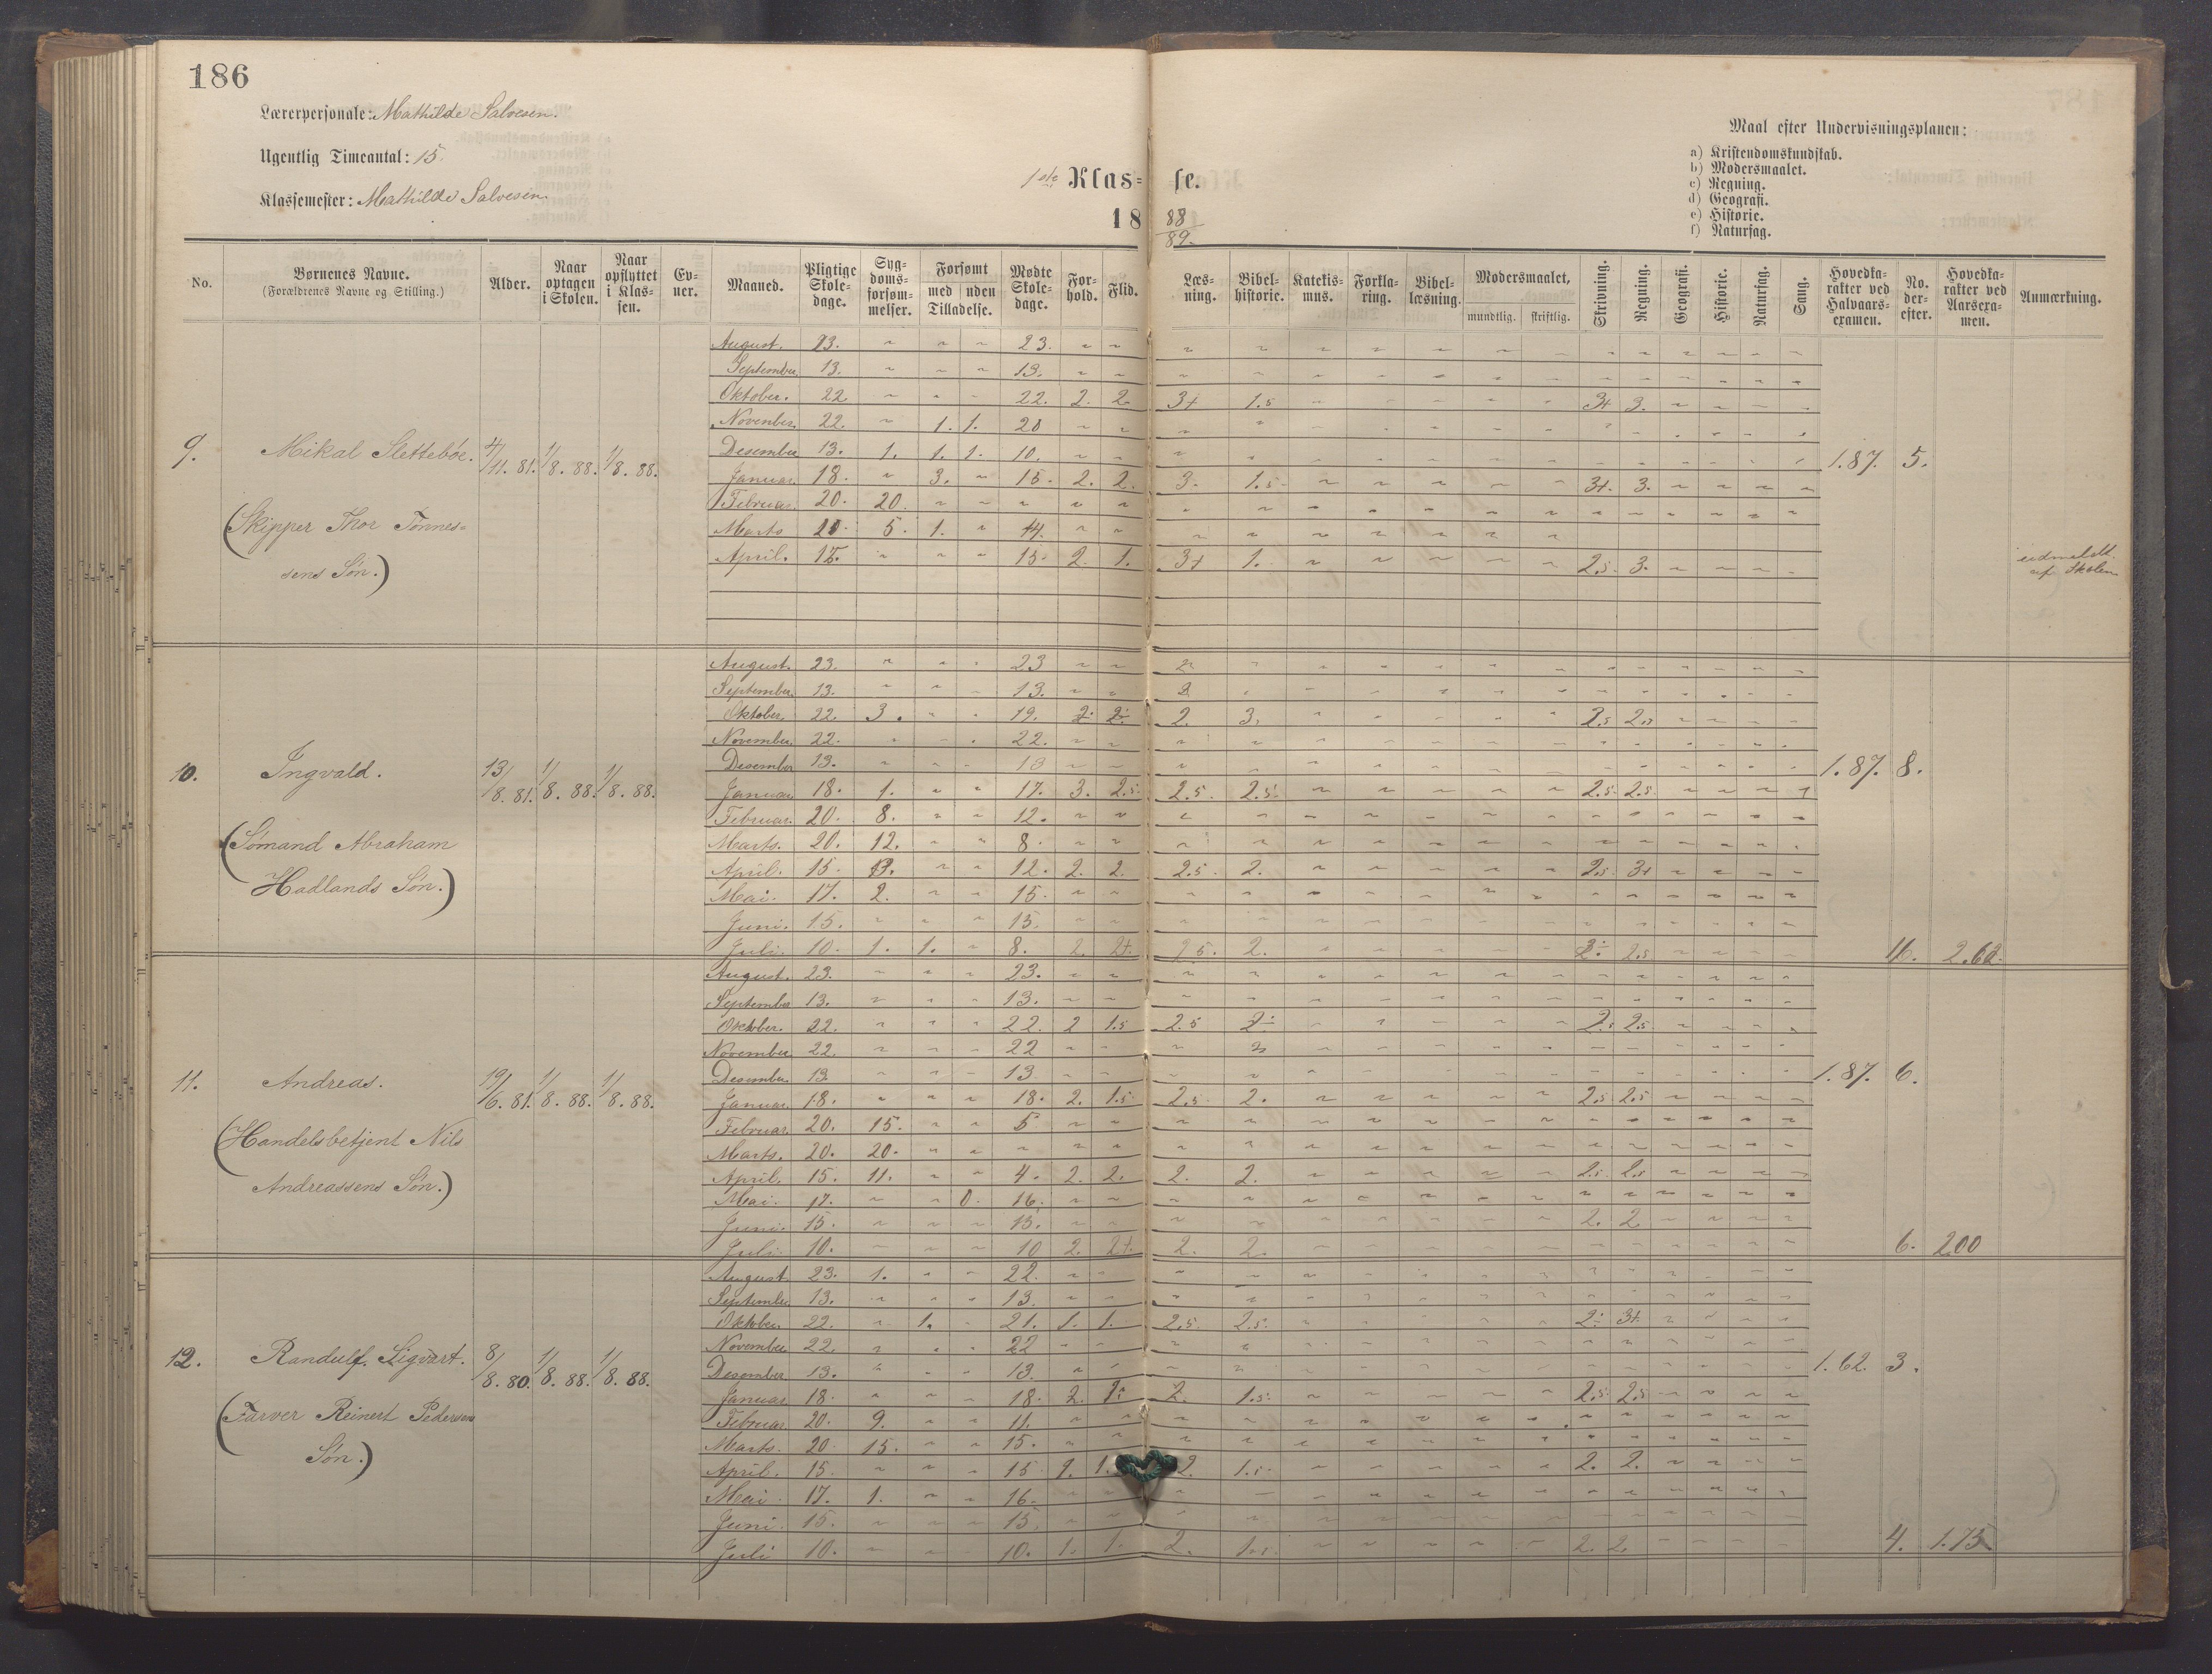 186
Lærerpersonale: Mathilde Salvesen.
Ugentlig Timeantal: 15.
Klassemester: Mathilde Salvesen.
1ste Klas= se.
18 88/89.
Maal efter Undervisningsplanen:
a) Kristendomskundskab.
b) Modersmaalet.
c) Regning.
d) Geografi.
e) Historie.
f) Naturfag.
No. Børnenes Navne. (Forældrenes Navne og Stilling.) Alder. Naar optagen i Skolen. Naar opflyttet i Klas-sen. Ev-ner. Maaned. Pligtige Skole-dage. Syg-doms-forsøm-melser. Forsømt med uden Tilladelse. Mødte Skole-dage. For-hold. Flid. Læs-ning. Bibel-historie. Katekis-mus. Forkla-ring. Bibel-læsning. Modersmaalet, mundtlig. skriftlig. Skrivning. Regning. Geografi. Historie. Naturfag. Sang. Hovedka-rakter ved Halvaars-examen. No. der-efter. Hovedka-rakter ved Aarsexa-men. Anmærkning.
August. 23. 23.
September. 13. 13.
Oktober. 22. 22. 2. 2. 3+ 1.5 3+ 3.
November. 22. 1. 1. 20
9. Mikal Slettebøe. 4/11. 81. 1/8. 88. 1/8. 88. Desember 13. 1. 1. 1. 10. 1.87. 5.
Januar. 18. 3. 15. 2. 2. 3. 1.5 3+. 3.
Februar. 20. 20.
(Skipper Thor Tønnes= Marts 20. 5. 1. 14.
sens Søn.) April. 15. 15. 2. 1. 3+ 1. 2.5. 3. udmeldt af Skolen
August. 23. 23
September. 13. 13.
Oktober. 22. 3. 19. 2. 3. 2.5 2.5
November. 22. 22.
10. Ingvald. 13/8. 81. 1/8. 88. 1/8. 88. Desember 13. 13 1.87. 8.
Januar 18. 1. 17. 3. 2.5. 2.5. 2.5. 2.5. 2.5
Februar. 20. 8. 12.
(Sømand Abraham Marts. 20. 12. 8.
Hadlands Søn.) April. 15. 12. 2. 2. 2.5. 2. 2.5. 3+
Mai. 17. 2. 15.
Juni. 15. 15.
Juli. 10. 1. 1. 8. 2. 2+. 2.5. 2. 2.5 2.62.
August. 23. 23.
September 13. 13.
Oktober. 22. 22. 2 1.5 2.5 2.5 2.5
November 22. 22
11. Andreas. 19/6. 81. 1/8. 88. 1/8. 88. Desember 13. 13 1.87. 6.
Januar. 18. 18. 2. 1.5 2.5. 2. 2.5 2.5
(Handelsbetjent Nils Februar. 20. 15. 5.
Marts. 20. 20.
Andreassens Søn.) April. 15. 11. 4. 2. 2. 2. 2. 2.5. 2.5
Mai. 17. 0. 16.
Juni. 15. 15. 2. 2
Juli. 10. 10 2. 2+. 2. 2. 6. 2.00
August 23. 1. 22.
September. 13. 13.
Oktober. 22. 1. 21. 1. 1. 2.5. 2.5. 3+.
November 22. 22
12. Randulf. Sigvart. 8/8. 80. 1/8. 88. 1/8. 88. Desember 13. 13. 1.62. 3.
Januar 18. 18. 2. 2. 1.5. 2.5. 2.5
(Farver Reinert Pedersens Februar. 20. 9. 11.
Søn.) Marts. 20. 15. 15.
April. 15. 15. 1. 2. 1.5. 2. 2.
Mai. 17. 1. 16.
Juni. 15. 15.
Juli 10. 10. 1. 1. 2. 1.5. 2. 2. 4. 1.75